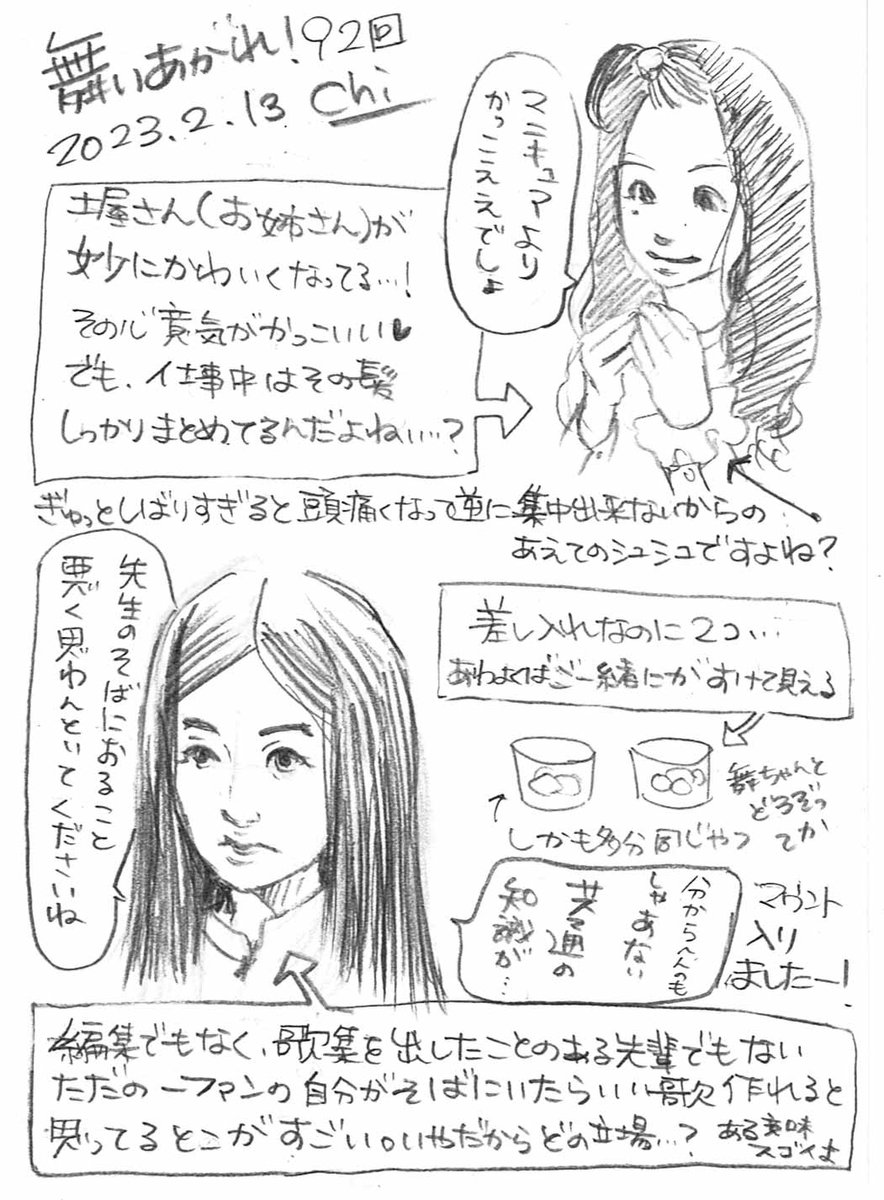 舞いあがれ!92回
2023.2.13 Chi
マニキュアより
かっこええでしょ
土屋さん(お姉さん)が
妙にかわいくなってる…!
その心意気がかっこいい♥
でも、仕事中はその髪
しっかりまとめてるんだよねぃ…?
ぎゅっとしばりすぎると頭痛くなって逆に集中出来ないからの
あえてのシュシュですよね?
先生のそばにおること
悪く思わんといてくださいね
差し入れなのに2コ…
あわよくばご一緒にがすけて見える
舞ちゃんと
どうぞって
か
しかも多分同じやつ
分からへんのも
しゃあない
共通の
知識が…
マウント
入り
ましたー!
編集でもなく、歌集を出したことのある先輩でもない
ただの一ファンの自分がそばにいたらいい歌作れると
思ってるとこがすごい。いやだからどの立場…?
ある意味
スゴイよ